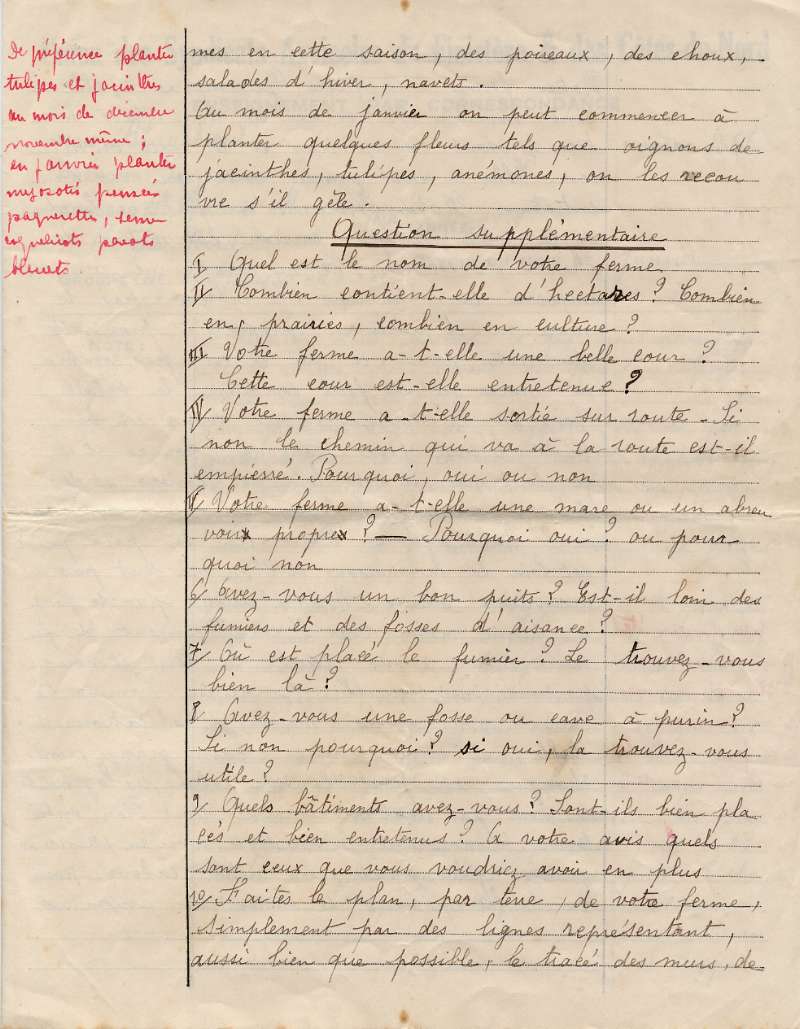 De préférence planter
tulipes et jacinthes
au mois de décembre
novembre même ;
en janvier planter
myosotis pensées
paquerettes, semer
coquelicots pavots
bleuets.
mes en cette saison, des poireaux, des choux,
salades d'hiver, navets.
Au mois de janvier on peut commencer à
planter quelques fleurs tels que oignons de
jacinthes, tulipes, anémones, on les recou
vre s'il gèle.
Question supplémentaire
I Quel est le nom de votre ferme
II Combien contient-elle d'hectares ? Combien
en, prairies, combien en culture ?
III Votre ferme a-t-elle une belle cour ?
Cette cour est-elle entretenue ?
IV Votre ferme a-t-elle sortie sur route. Si
non le chemin qui va à la route est-il
empierré. Pourquoi, oui ou non
V Votre ferme a-t-elle une mare ou un abreu
voir propre ? — Pourquoi oui ? ou pour
quoi non
6/ Avez-vous un bon puits ? Est-il loin des
fumiers et des fosses d'aisance ?
7/ Où est placé le fumier ? Le trouvez-vous
bien là ?
8 Avez-vous une fosse ou cave à purin ?
Si non pourquoi ? si oui, la trouvez-vous
utile ?
9/ Quels bâtiments avez-vous ? Sont-ils bien pla
cés et bien entretenus ? A votre avis quels
sont ceux que vous voudriez avoir en plus
10/ Faites le plan, par terre, de votre ferme,
simplement par des lignes représentant,
aussi bien que possible, le tracé des murs, de